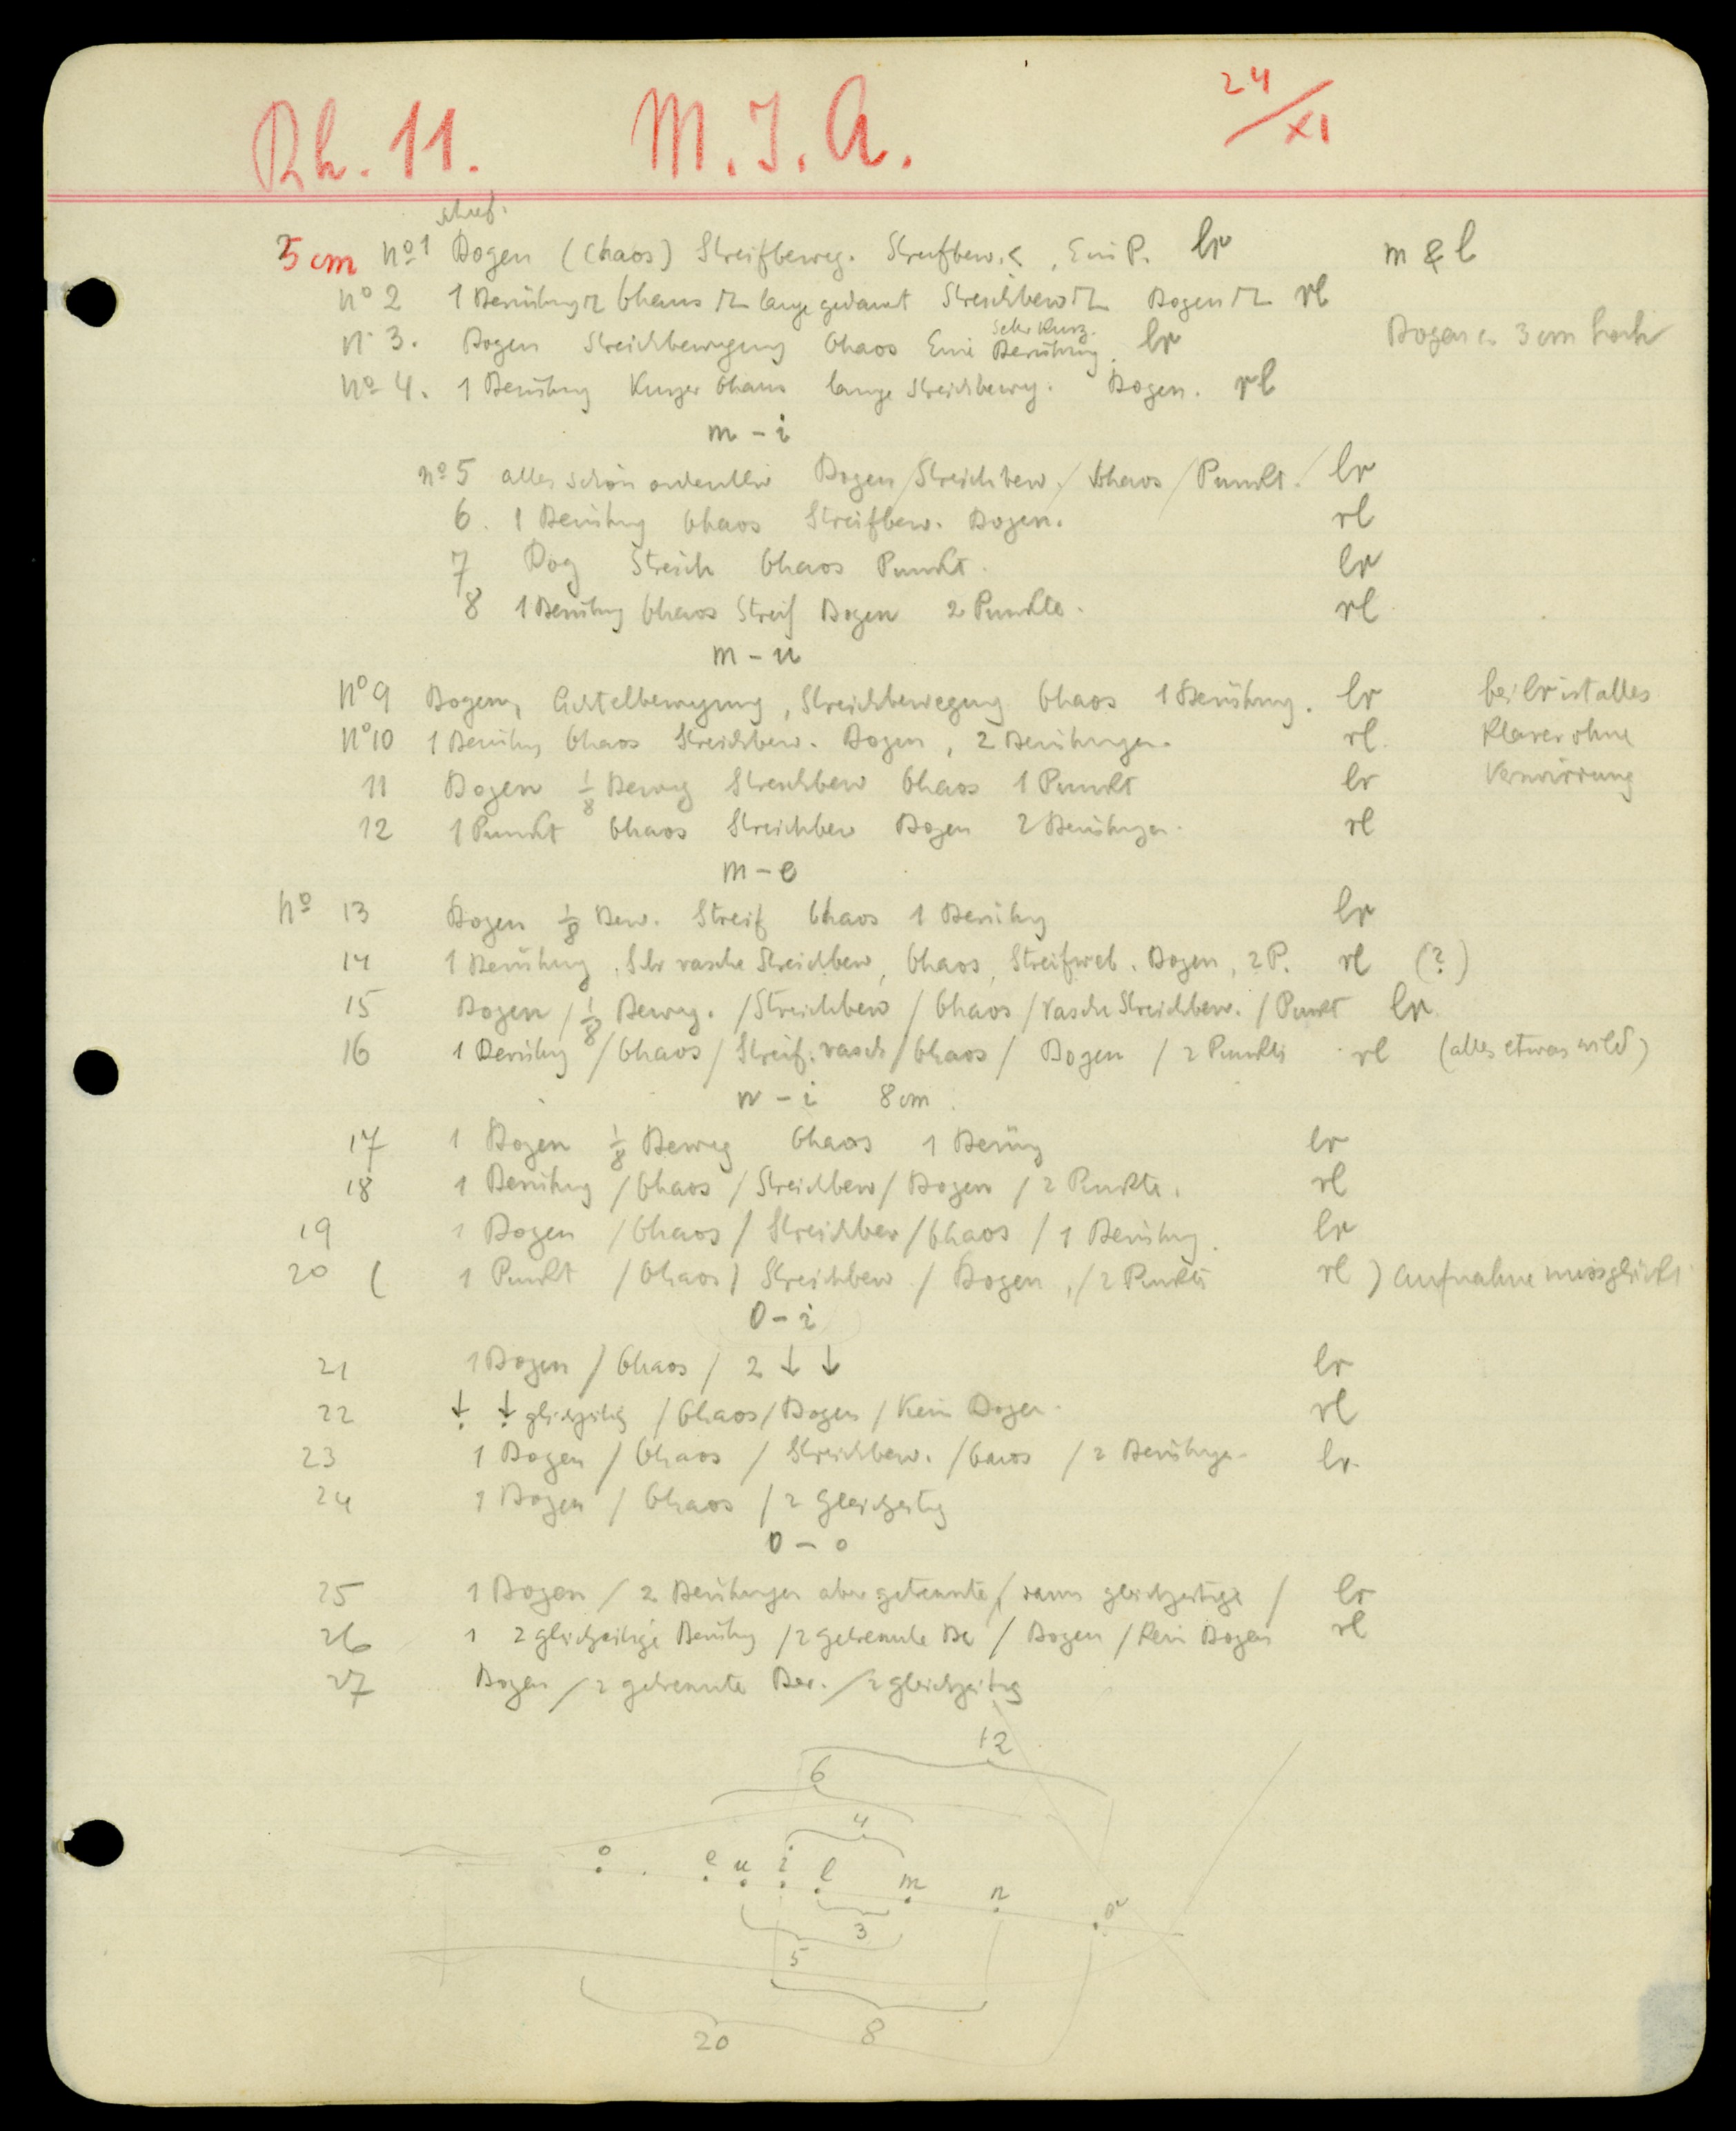 Rh. 11. M. J. A. 24/XI
5 cm No 1 Bogen (Chaos) Streifbeweg. Streifbew. < , Ein P. lr m & l
No 2 1 Berührung Chaos lange gedauert Streichbew Bogen rl
sehr kurz.
N 3. Bogen Streichbewegung Chaos Eine Berührung. lr Bogen ca 3 cm hoch
No 4. 1 Berührung Kurzer Chaos lange Streichbeweg. Bogen. rl
m - i
No 5 alles schön ordentlich Bogen / Streichbew. / Chaos / Punkt. / lr
6. 1 Berührung Chaos Streifbew. Bogen. rl
7 Bog Streich Chaos Punkt. lr
8 1 Berührung Chaos Streif Bogen 2 Punkte. rl
m - u
No 9 Bogen, Achtelbewegung, Streichbewegung Chaos 1 Berührung. lr bei lr ist alles
No 10 1 Berührung Chaos Streichbew. Bogen, 2 Berührungen. rl. klarer ohne
11 Bogen 1/8 Beweg Streichbew Chaos 1 Punkt lr Verwirrung
12 1 Punkt Chaos Streichbew Bogen 2 Berührungen. rl
m - e
No 13 Bogen 1/8 Bew. Streif Chaos 1 Berührung lr
14 1 Berührung. Sehr rasche Streichbew, Chaos, Bogen, 2 P. rl (?)
15 Bogen / 1/8 Beweg. / Streichbew / Chaos / rasche Streichbew. / Punkt lr
16 1 Berührung / Chaos / Streif. rasch / Chaos / Bogen / 2 Punkte rl (alles etwas wild)
n - i 8 cm
17 1 Bogen 1/8 Beweg Chaos 1 Berüng lr
18 1 Berührung / Chaos / Streichbew / Bogen / 2 Punkte. rl
19 1 Bogen / Chaos / Streichbew / Chaos / 1 Berührung. lr
20 ( 1 Punkt / Chaos / Streichbew / Bogen, / 2 Punkte rl ) Aufnahme missglückt
o - i
21 1 Bogen / Chaos / 2 ↓ ↓ lr
22 ↓ ↓ gleichzeitig / Chaos / Bogen / Kein Bogen. rl
23 1 Bogen / Chaos / Streichbew. / Caos / 2 Berührungen lr.
24 1 Bogen / Chaos / 2 gleichzeitig
o - o
25 1 Bogen / 2 Berührungen aber getrennte / dann gleichzeitige / lr
26 1 2 gleichzeitige Berührung / 2 getrennte Be / Bogen / Kein Bogen rl
27 Bogen / 2 getrennte Ber. / 2 gleichzeitig
12
6
4
o e u i l m n o
3
5
20 8